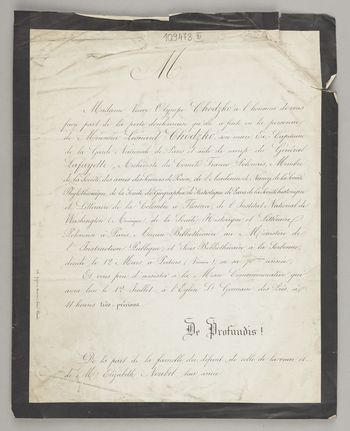 109473 II
M
Madame Veuve Olympe Chodzko a l'honneur de vous
faire part de la perte douloureuse qu'elle a faite en la personne
de Monsieur Léonard Chodzko, son mari Ex Capitaine
de la Garde Nationale de Paris et aide de camp du Général
Lafayette, Archiviste du Comité Franco Polonais, Membre
de la Société des amis des Sciences de Posen, de l'Académie de Nancy, de la Société
Philotechnique, de la Société de Géographie, de Statistique de Paris, de la Société historique
et Littéraire de la Colombie à Florence, de l'Institut National de
Washington (Amérique), de la Société Historique et Littéraire
Polonaise à Paris, Ancien Bibliothécaire au Ministère de
l'Instruction Publique, et Sous Bibliothécaire à la Sorbonne,
décédé le 12 Mars, à Poitiers (Vienne), en sa 71ème année.
Et vous prie d'assister à la Messe Commémorative qui
aura lieu le 12 Juillet, à l'Eglise St Germain des Prés, à
11 heures très-précises.
De Profundis!
De la part de la famille du défunt, de celle de la veuve et
de Mme Elizabeth son amie